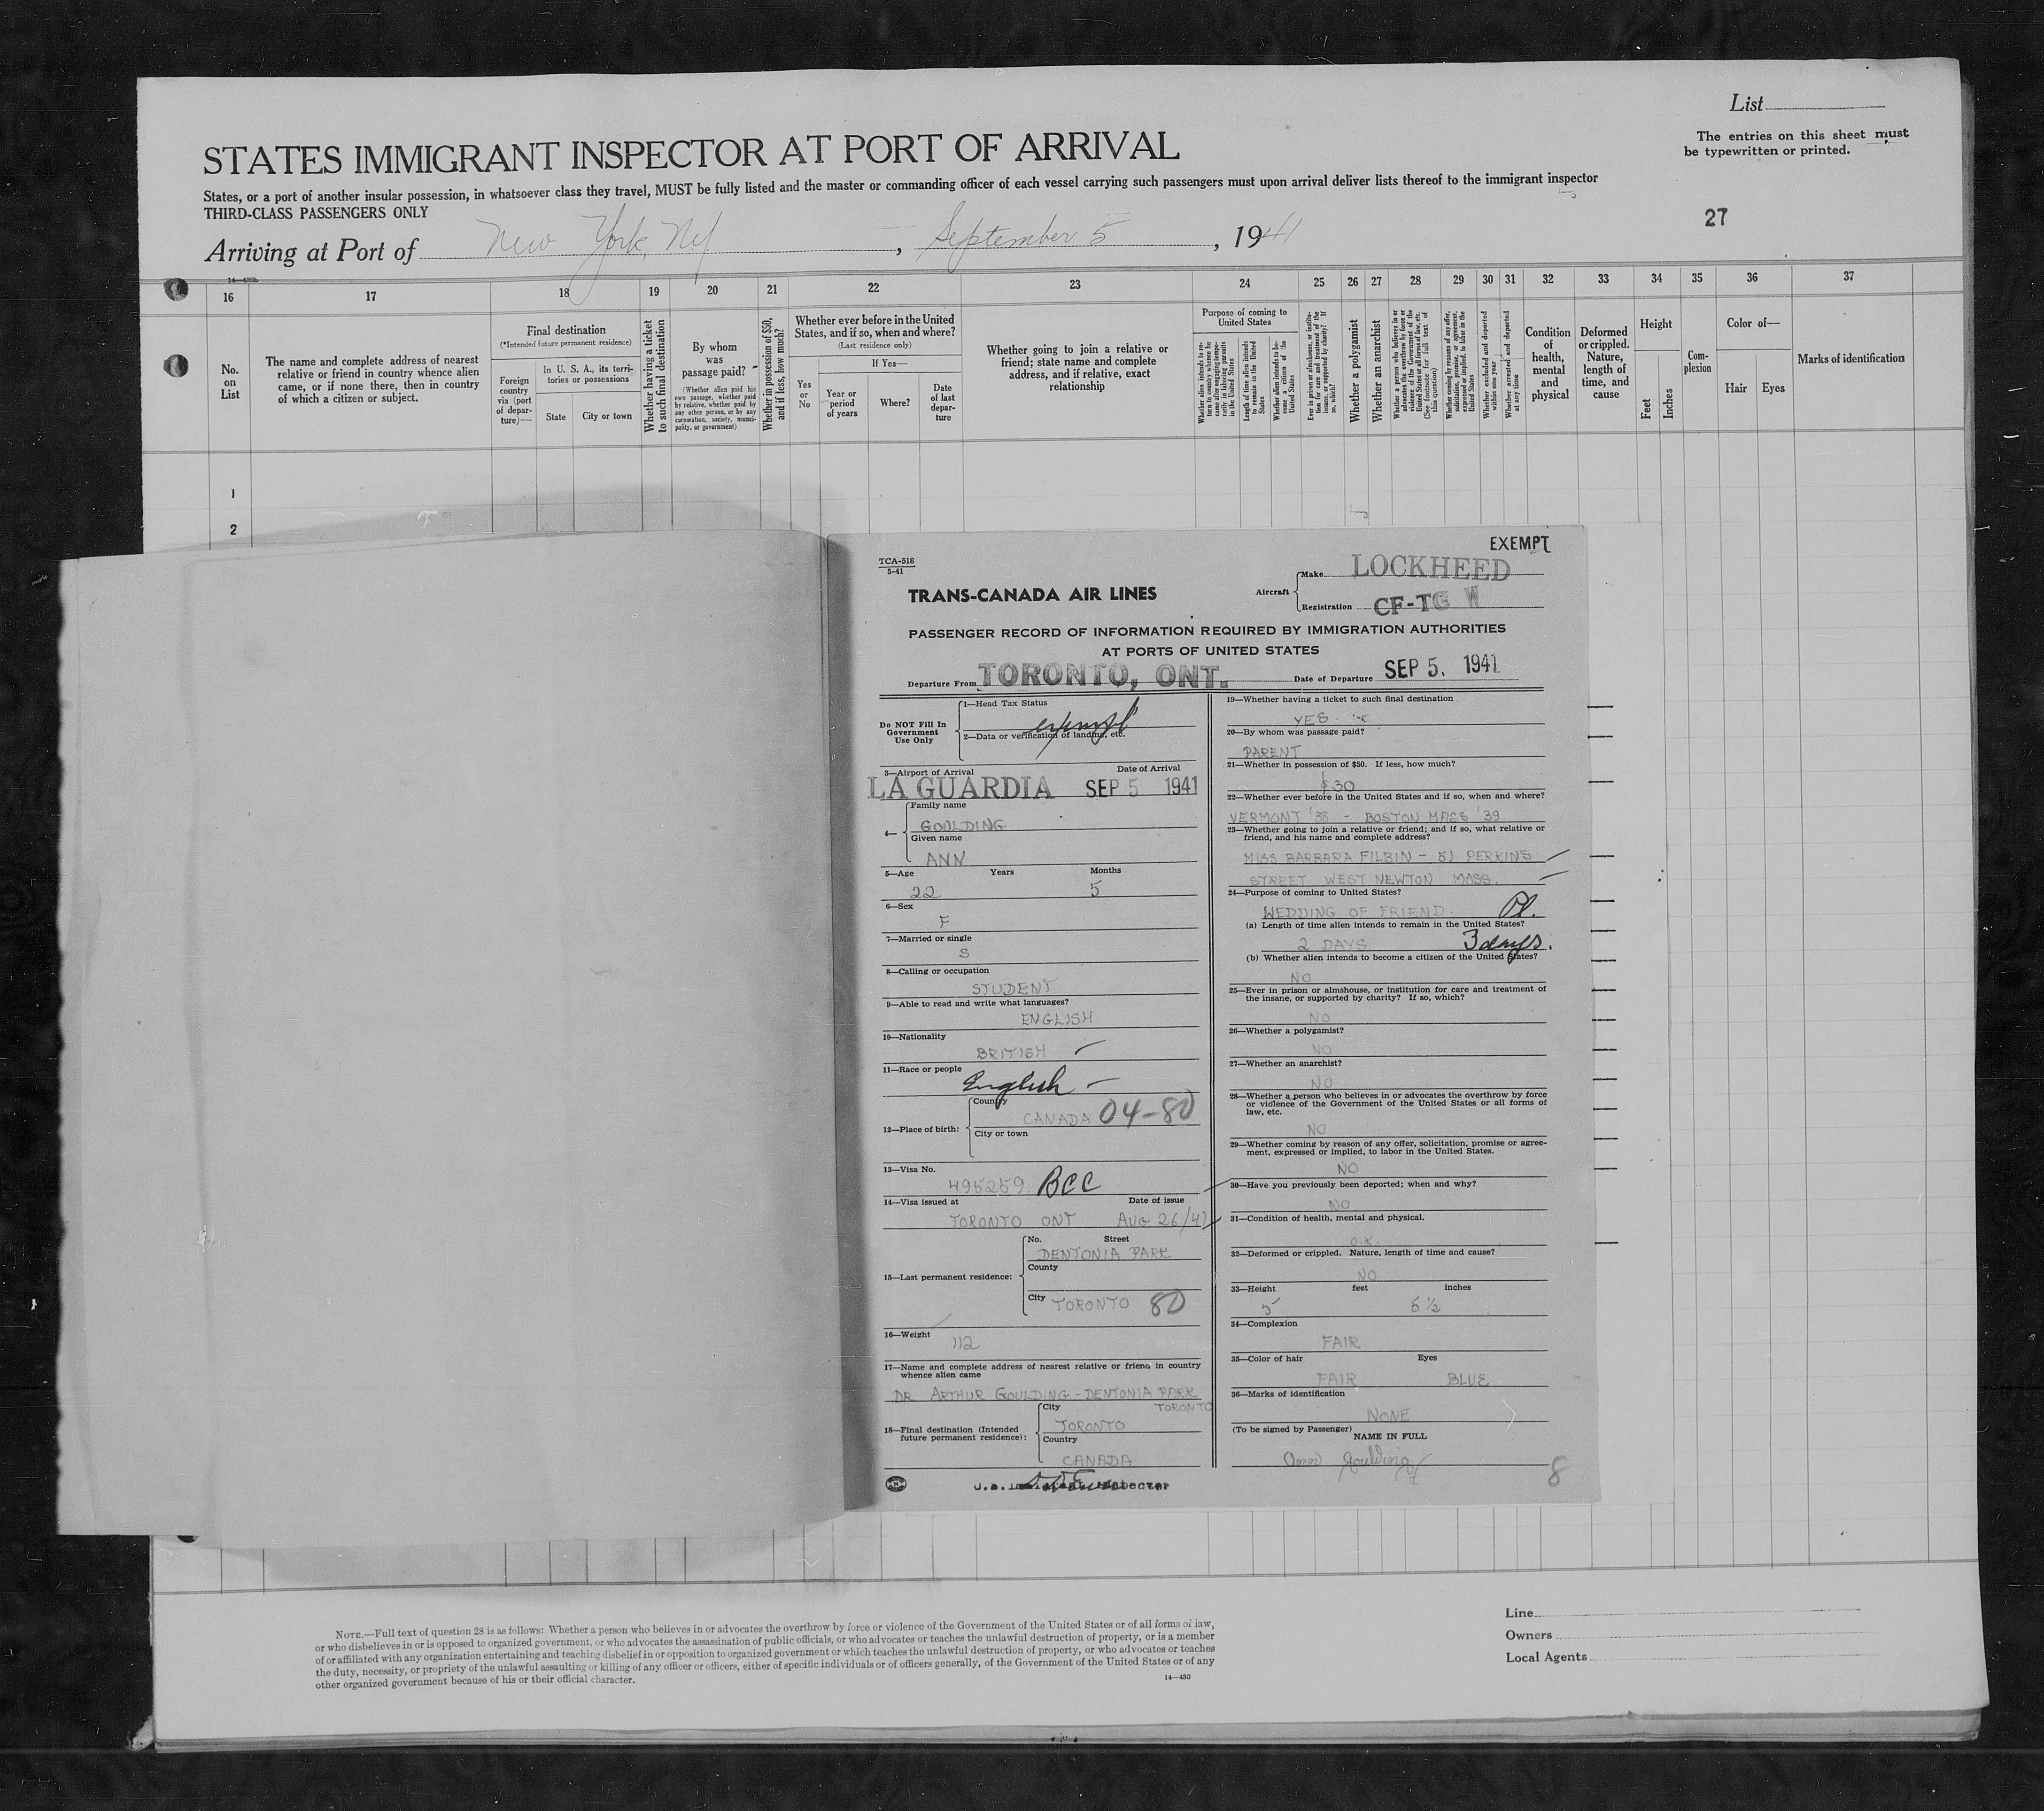 List
The entries on this sheet must
be typewritten or printed.
STATES IMMIGRANT INSPECTOR AT PORT OF ARRIVAL
States, or a port of another insular possession, in whatsoever class they travel, MUST be fully listed and the master or commanding officer of each vessel carrying such passengers must upon arrival deliver lists thereof to the immigrant inspector
THIRD-CLASS PASSENGERS ONLY
27
Arriving at Port of New York, NY, September 5, 1941
14—430b
16 17 18 19 20 21 22 23 24 25 26 27 28 29 30 31 32 33 34 35 36 37
No.
on
List
The name and complete address of nearest
relative or friend in country whence alien
came, or if none there, then in country
of which a citizen or subject.
Final destination
(*Intended future permanent residence)
Foreign
country
via (port
of depar-
ture)—
In U. S. A., its terri-
tories or possessions
State
City or town
Whether having a ticket
to such final destination
By whom
was
passage paid?
(Whether alien paid his
own passage, whether paid
by relative, whether paid by
any other person, or by any
corporation, society, munici-
pality, or government)
Whether in possession of $50,
and if less, how much?
Whether ever before in the United
States, and if so, when and where?
(Last residence only)
Yes
or
No
If Yes—
Year or
period
of years
Where?
Date
of last
depar-
ture
Whether going to join a relative or
friend; state name and complete
address, and if relative, exact
relationship
Purpose of coming to
United States
Whether alien intends to re-
turn to country whence he
came after engaging tempo-
rarily in laboring pursuits
in the United States
Length of time alien intends
to remain in the United
States
Whether alien intends to be-
come a citizen of the
United States
Ever in prison or almshouse, or institu-
tion for care and treatment of the
insane, or supported by charity? If
so, which?
Whether a polygamist
Whether an anarchist
Whether a person who believes in or
advocates the overthrow by force or
violence of the Government of the
United States or all forms of law, etc.
(See footnote for full text of
this question)
Whether coming by reason of any offer,
solicitation, promise, or agreement,
expressed or implied, to labor in the
United States
Whether excluded and deported
within one year
Whether arrested and deported
at any time
Condition
of
health,
mental
and
physical
Deformed
or crippled.
Nature,
length of
time, and
cause
Height
Feet
Inches
Com-
plexion
Color of—
Hair
Eyes
Marks of identification
1
2
EXEMPT
TCA-518
5-41
TRANS-CANADA AIR LINES
Aircraft
Make LOCKHEED
Registration CF-TG W
PASSENGER RECORD OF INFORMATION REQUIRED BY IMMIGRATION AUTHORITIES
AT PORTS OF UNITED STATES
Departure From TORONTO, ONT. Date of Departure SEP 5. 1941
Do NOT Fill In
Government
Use Only
1—Head Tax Status
exempt
2—Data or verification of landing, etc.
3—Airport of Arrival Date of Arrival
LA GUARDIA SEP 5 1941
4—
Family name
GOULDING
Given name
ANN
5—Age Years Months
22 5
6—Sex
F
7—Married or single
S
8—Calling or occupation
STUDENT
9—Able to read and write what languages?
ENGLISH
10—Nationality
BRITISH
11—Race or people
English
12—Place of birth:
Country
CANADA 04-80
City or town
13—Visa No.
495259. BCC
14—Visa issued at Date of issue
TORONTO ONT AUG 26/41
15—Last permanent residence:
No. Street
DENTONIA PARK
County
City TORONTO 80
16—Weight
112
17—Name and complete address of nearest relative or friend in country
whence alien came
DR ARTHUR GOULDING - DENTONIA PARK
TORONTO
18—Final destination (Intended
future permanent residence):
City
TORONTO
Country
CANADA
U.S. Immigrant Inspector
19—Whether having a ticket to such final destination
YES
20—By whom was passage paid?
PARENT
21—Whether in possession of $50. If less, how much?
$30
22—Whether ever before in the United States and if so, when and where?
VERMONT '38 - BOSTON MASS '39
23—Whether going to join a relative or friend; and if so, what relative or
friend, and his name and complete address?
MISS BARBARA FILBIN - 51 PERKINS
STREET WEST NEWTON MASS.
24—Purpose of coming to United States?
WEDDING OF FRIEND. Pl.
(a) Length of time alien intends to remain in the United States?
2 DAYS 3 days.
(b) Whether alien intends to become a citizen of the United States?
NO
25—Ever in prison or almshouse, or institution for care and treatment of
the insane, or supported by charity? If so, which?
NO
26—Whether a polygamist?
NO
27—Whether an anarchist?
NO
28—Whether a person who believes in or advocates the overthrow by force
or violence of the Government of the United States or all forms of
law, etc.
NO
29—Whether coming by reason of any offer, solicitation, promise or agree-
ment, expressed or implied, to labor in the United States.
NO
30—Have you previously been deported; when and why?
NO
31—Condition of health, mental and physical.
O.K.
32—Deformed or crippled. Nature, length of time and cause?
NO
33—Height feet inches
5 5 ½
34—Complexion
FAIR
35—Color of hair Eyes
FAIR BLUE
36—Marks of identification
NONE
(To be signed by Passenger)
NAME IN FULL
Ann Goulding
8
NOTE.—Full text of question 28 is as follows: Whether a person who believes in or advocates the overthrow by force or violence of the Government of the United States or of all forms of law,
or who disbelieves in or is opposed to organized government, or who advocates the assassination of public officials, or who advocates or teaches the unlawful destruction of property, or is a member
of or affiliated with any organization entertaining and teaching disbelief in or opposition to organized government or which teaches the unlawful destruction of property, or who advocates or teaches
the duty, necessity, or propriety of the unlawful assaulting or killing of any officer or officers, either of specific individuals or of officers generally, of the Government of the United States or of any
other organized government because of his or their official character.
14—430
Line
Owners
Local Agents